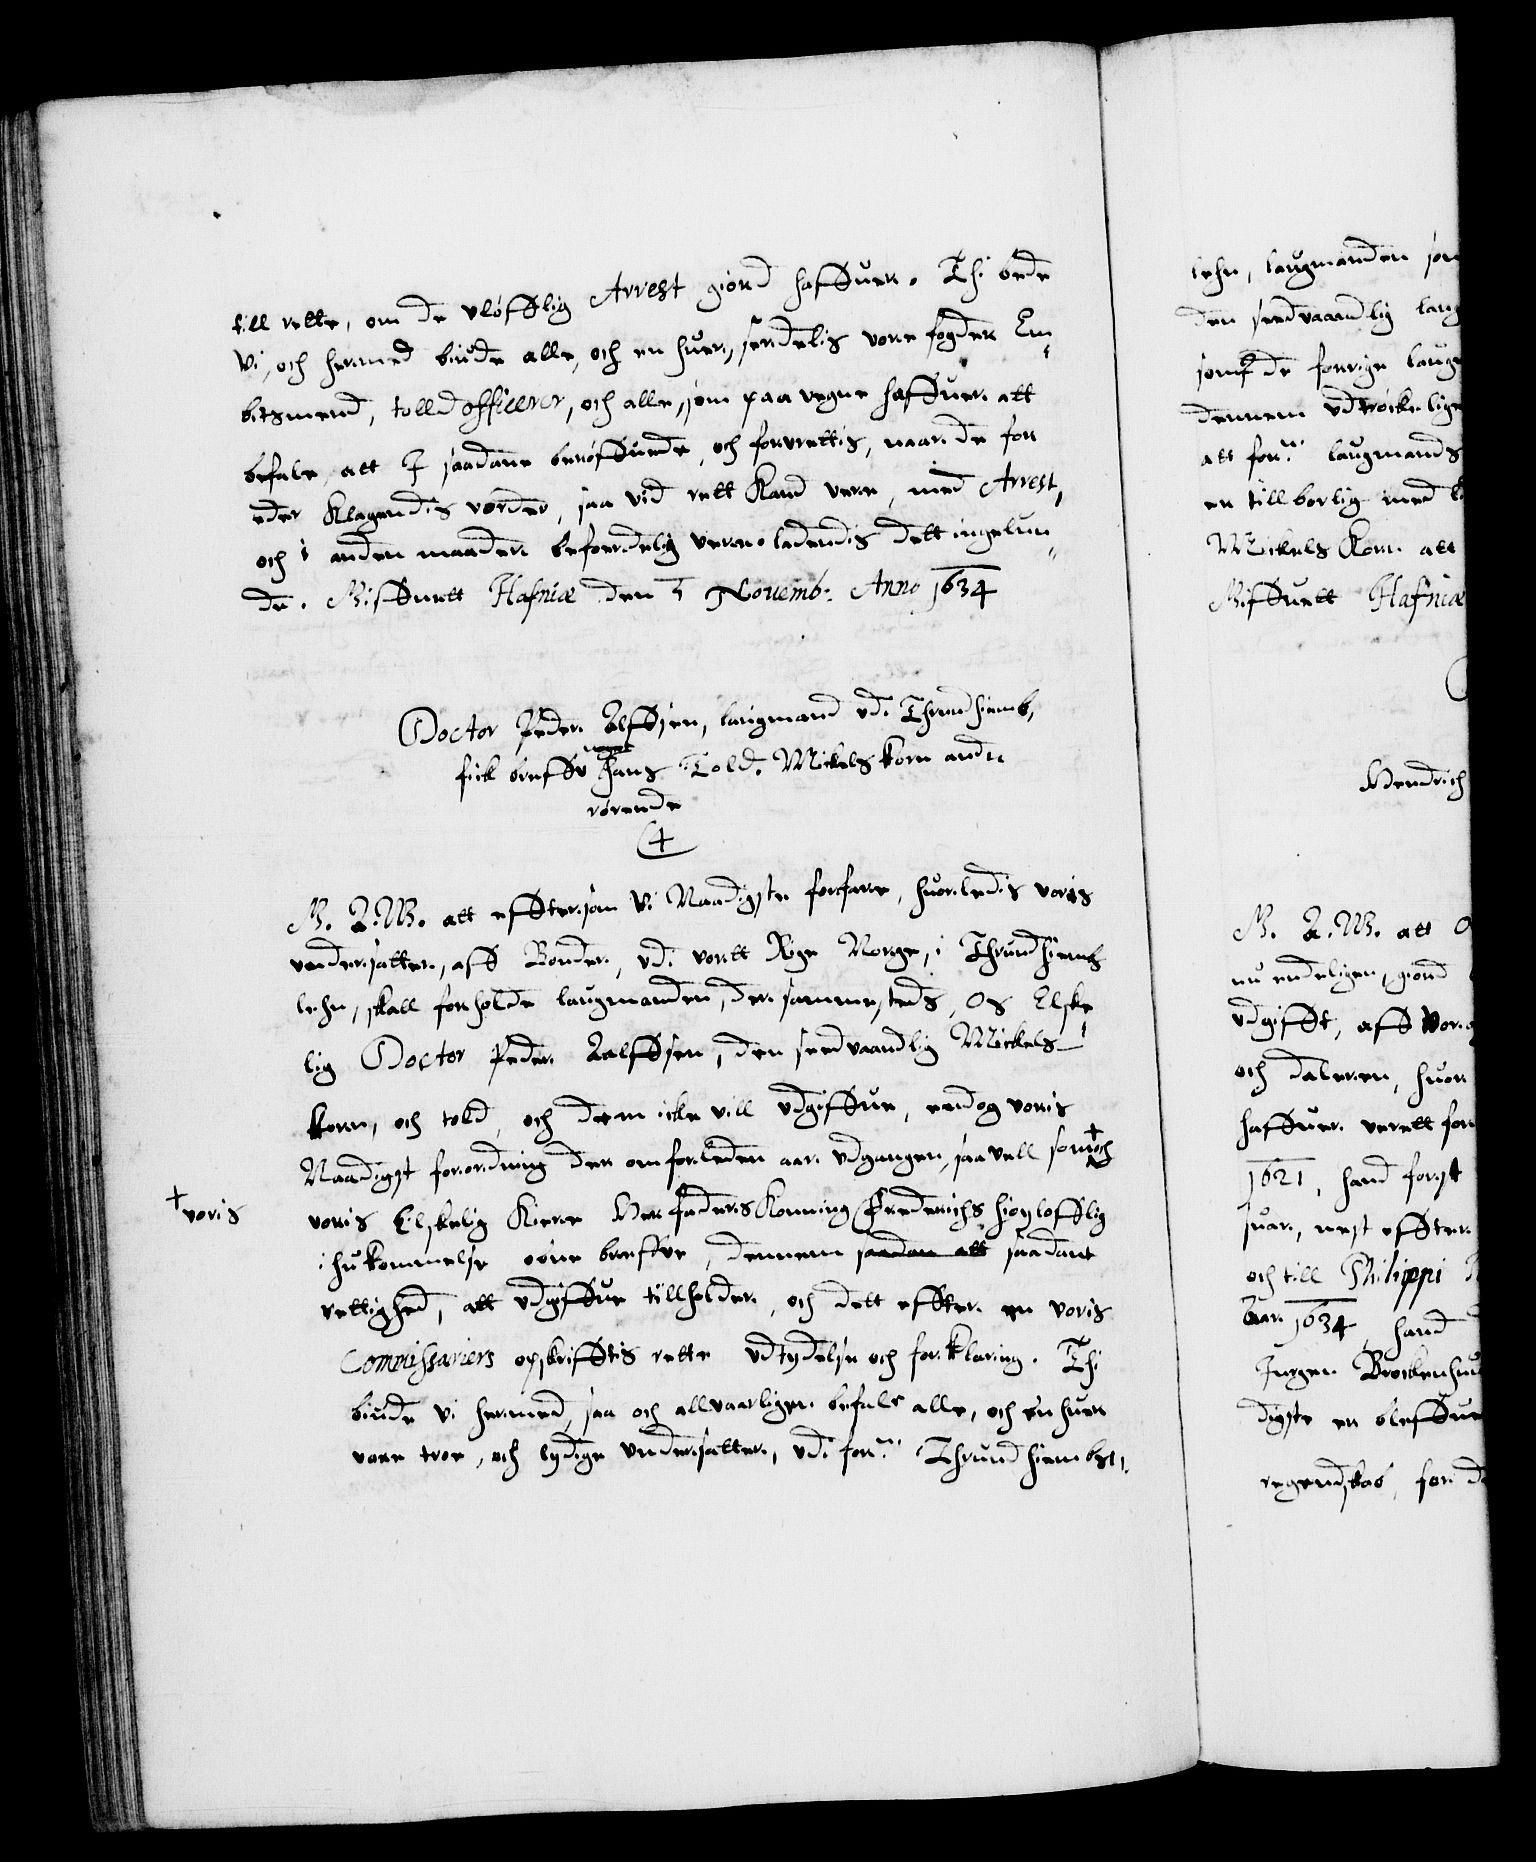 till rette, om de vløfflig Arrest giord haffuer. Thi bede
Vi, och hermed biude alle, och en huer, serdelis vore fogder Em-
bitzmend, told officerer, och alle, som paa vegne haffuer att
befale, att I saadane berøffuede, och forvrettis, naar de for
eder Klagendis vorder, saa vid rett Kand vere, med Arrest,
och i anden maader befoerdelig verer. ladendis dett ingelun-
de. Giffuett Hafniæ den 3 Nouemb: Anno 1634
Doctor Peder Alffsen, laugmand vdi Thrundhiemb,
fick breff hans Told. Mickels korn
rørende
G. A. W. att efftersom Vi Naadigste forfare, huorledis voris
vndersatter, aff Bønder, vdi vortt Rige Norge, i Thrundhiembs
lehn, skall forholde laugmanden, der sammesteds, Os Elske-
lig Doctor Peder Aalffsen, den seedvaandlig Mickels-
korn, och told, och dem icke vill vdgiffue, endog voris
Naadigst forordning der om forleden aar vdgangen, saa vell som + och
+ voris
voris Elskelig Kiere Her faders Konning Frederichs høyloflig
ihukommelse obne breffue, dennem saadan att saadant
rettighed, att vdgiffue tillholder, och dett effter en voris
Commissariers opskrifftis rette vdtydelse och forklaring. Thi
biude Vi hermed, saa och allvaarligen befale alle, och en huer
vore troe, och lydige Vndersatter, vdi for:ne Thrundhiembs
lehn, laugmanden som
den seedvaandlig laug
som de forrige laug
dennem vdtrøckelige
att for:ne laugmands
en tillborlig med
Mickels Korn att
Giffuett Hafniæ
Hendrich
G. A. W. att
nu endeligen, giord
vdgifft, aff Vor
och daleren, huor
haffuer verett for
1621, hand først
suar, nest effter
och till Philippi
Aar 1634, hand
Jurgen Brockenhu
digste en bleffue
regendskab, for de